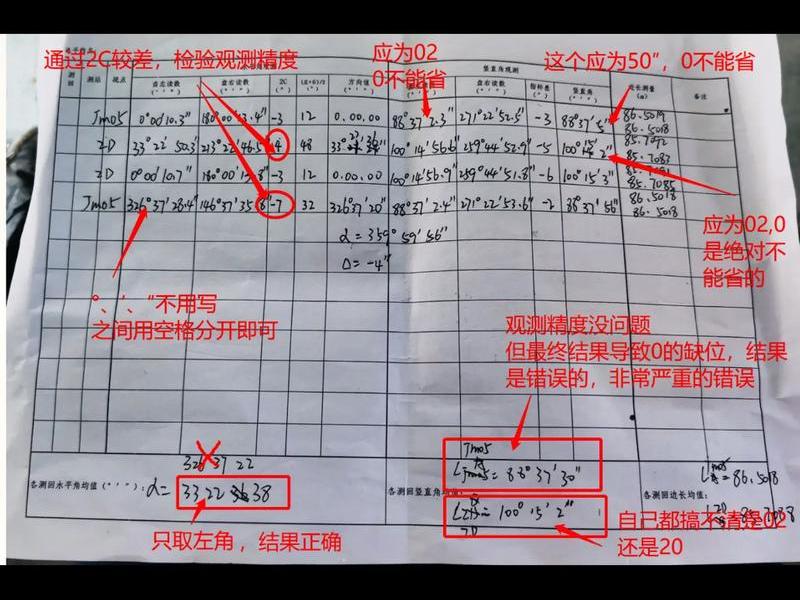 通过2C较差，检验观测精度
应为02
0不能省
这个应为50”，0不能省
竖直角观测
测回
测站
视点
盘左读数
盘右读数
2C
方向值
盘右读数
指标差
竖直角
边长测量
(m)
备注
Jm05 0°00′10.3″ 180°00′13.4″ -3 12 0.00.00 88°37′2.3″ 271°22′52.5″ -3 88°37′5″ 86.5019
86.5018
ZD 33°22′50.3″ 213°22′46.5″ 4 48 100°14′56.6″ 259°44′52.9″ -5 85.7092
85.7083
ZD 0°00′10.7″ 180°00′13.8″ -3 12 0.00.00 100°14′56.9″ 259°44′51.8″ -6 100°15′3″
85.7085
Jm05 326°37′28.4″ 146°37′35.8″ -7 32 326°37′20″ 88°37′2.4″ 271°22′53.6″ -2 88°37′56″ 86.5018
86.5018
α = 359°59′56″
Δ = -4″
应为02,0
是绝对不
能省的
°、′、”不用写
之间用空格分开即可
观测精度没问题
但最终结果导致0的缺位，结果
是错误的，非常严重的错误
326 37 22
各测回水平角均值(° ′ ″): α = 33 22 38
只取左角，结果正确
Jm05
各测回竖直角均值 = 88°37′30″
= 100°15′2″
ZD
= 86.5018
各测回边长均值:
自己都搞不清是02
还是20